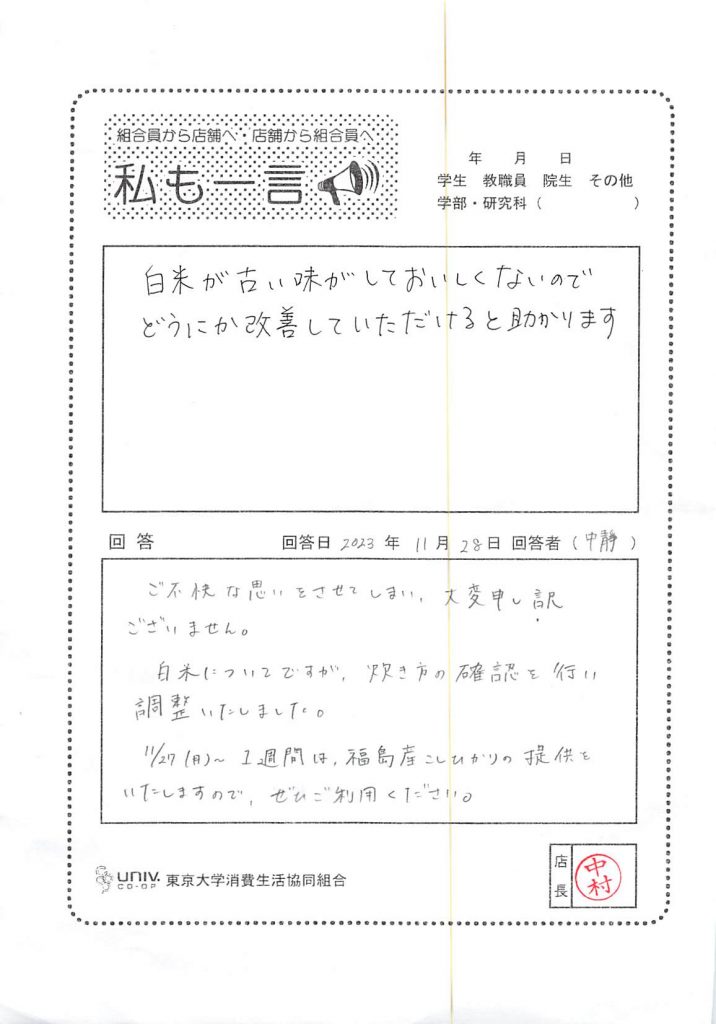 組合員から店舗へ・店舗から組合員へ
私も一言
年 月 日
学生 教職員 院生 その他
学部・研究科（ ）
白米が古い味がしておいしくないので
どうにか改善していただけると助かります
回答 回答日 2023 年 11 月 28 日 回答者（中静）
ご不快な思いをさせてしまい、大変申し訳
ございません。
白米についてですが、炊き方の確認を行い
調整いたしました。
11/27（月）～ 1週間は、福島産こしひかりの提供を
いたしますので、ぜひご利用ください。
UNIV.
CO-OP
東京大学消費生活協同組合
店長
中村